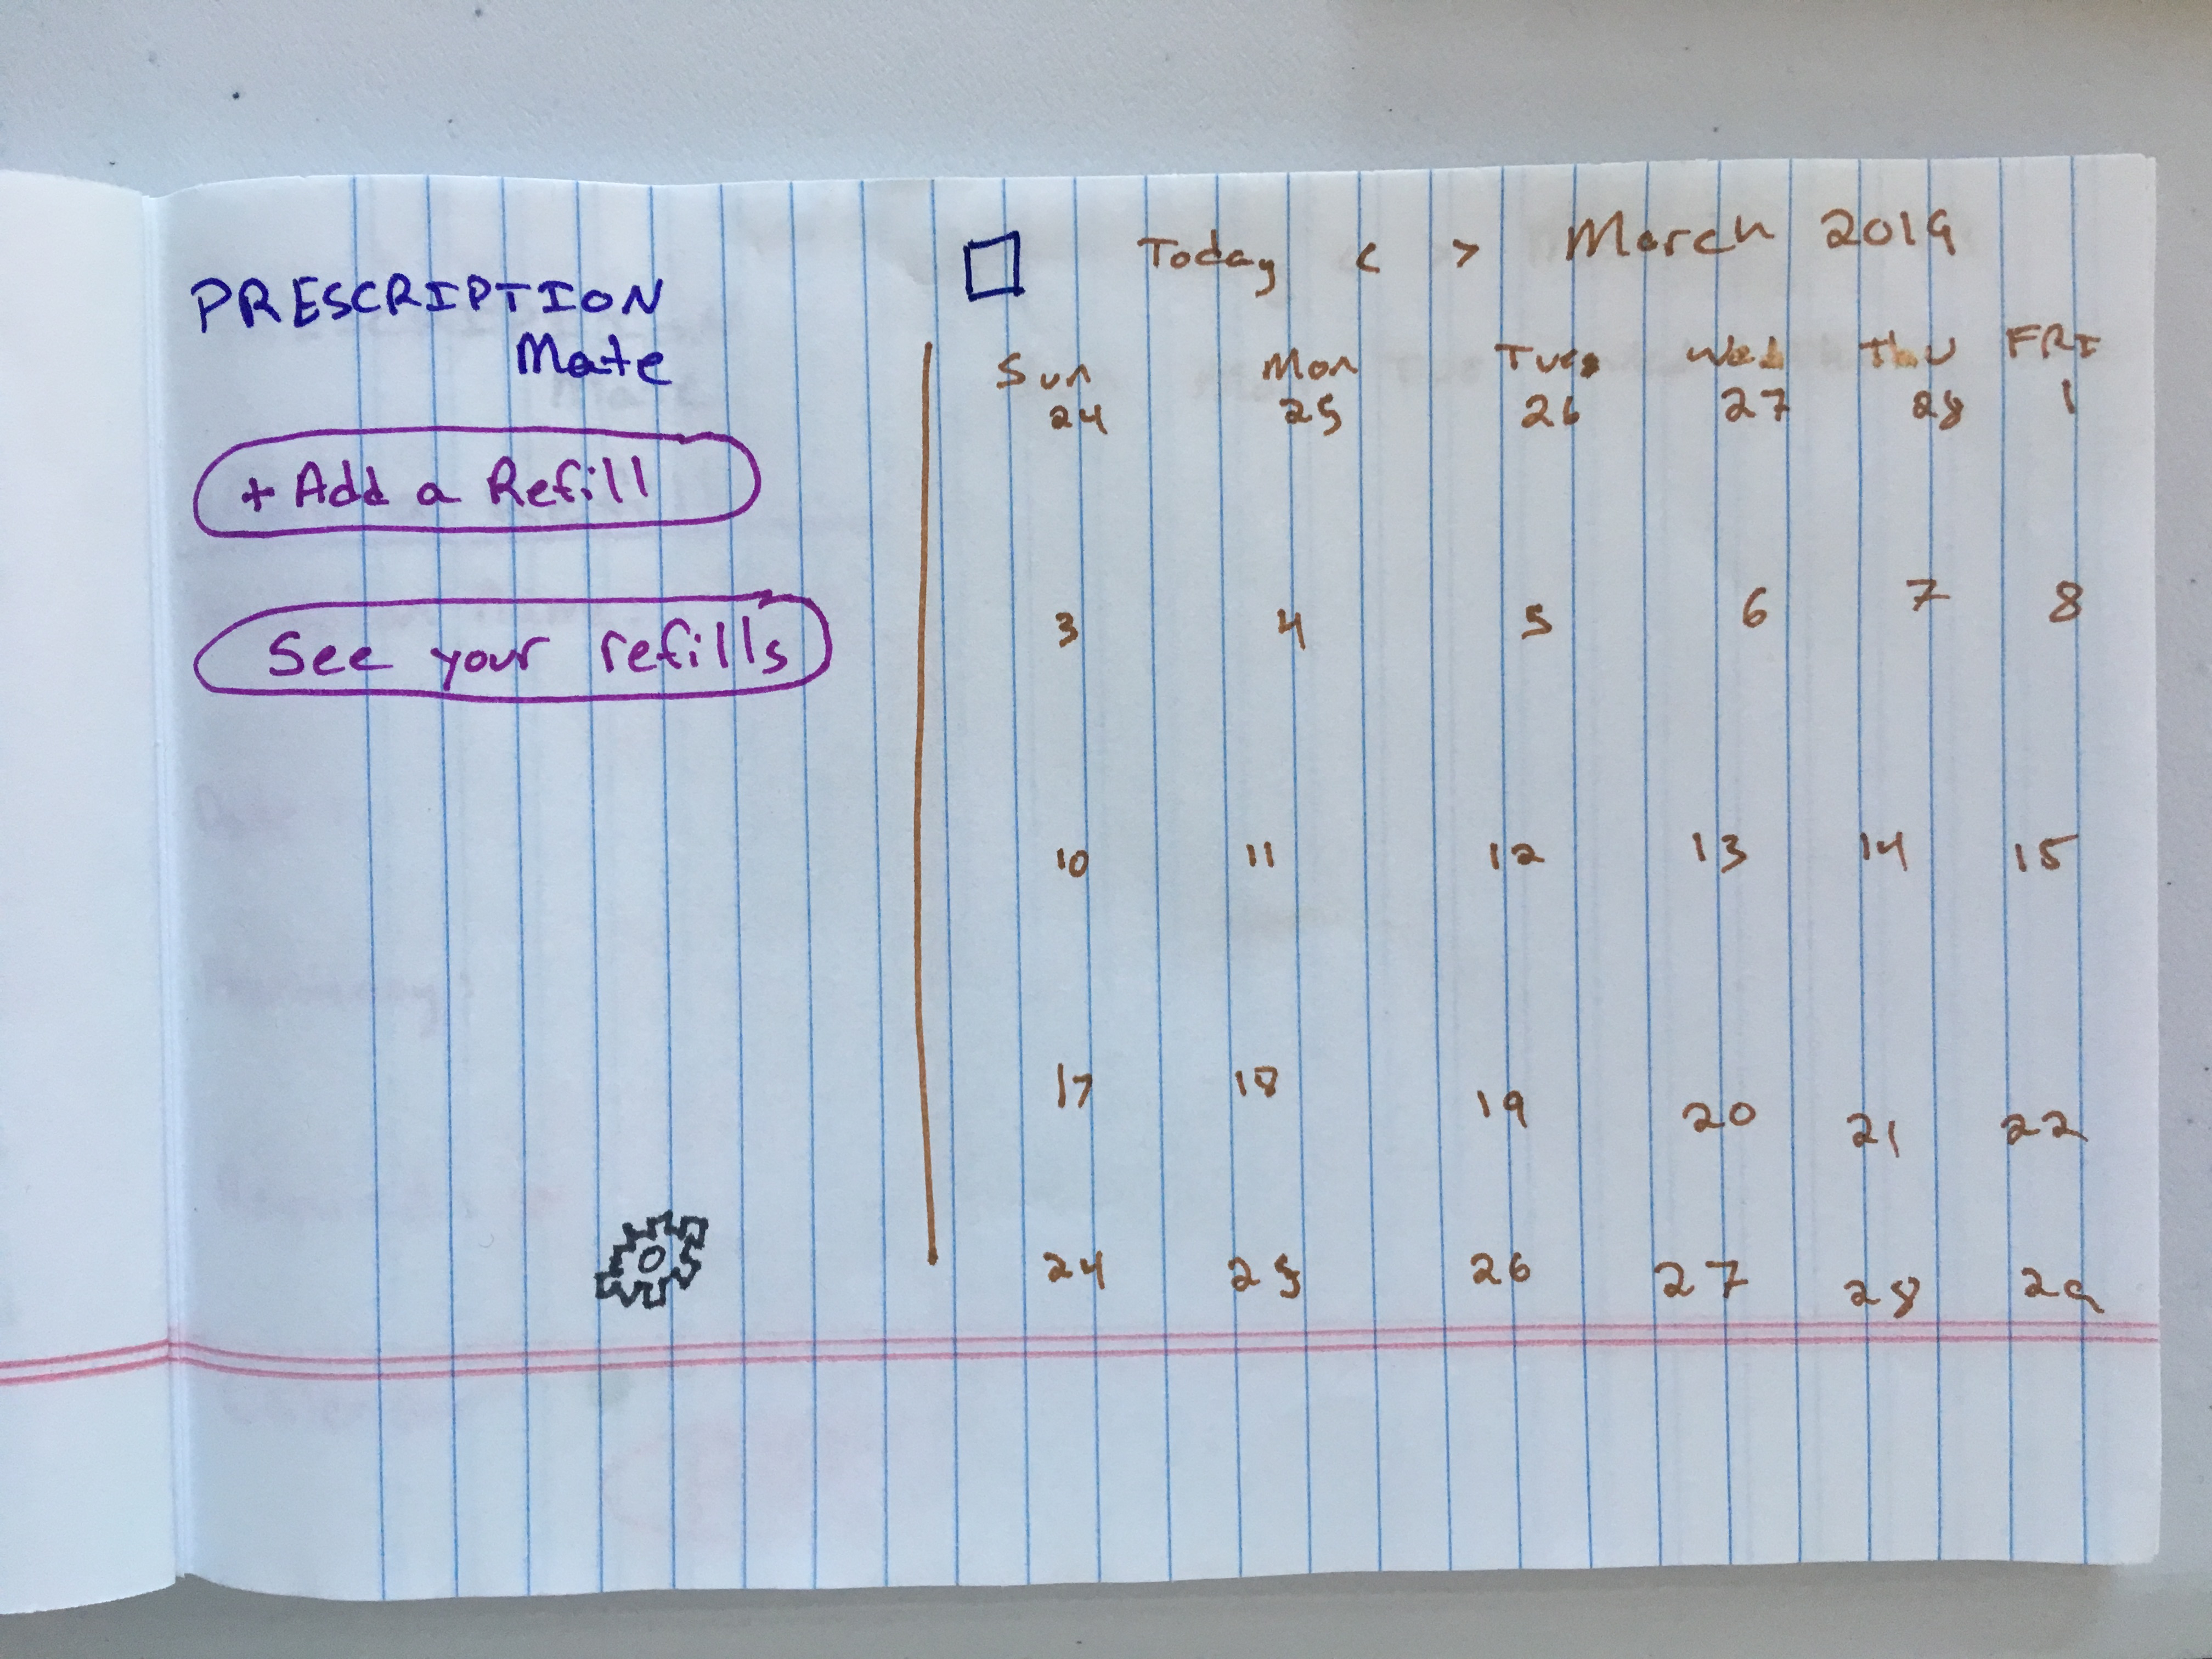 PRESCRIPTION
Mate
+ Add a Refill
See your refills
Today < > March 2019
Sun Mon Tues Wed Thu FRI
24 25 26 27 28 1
3 4 5 6 7 8
10 11 12 13 14 15
17 18 19 20 21 22
24 25 26 27 28 29